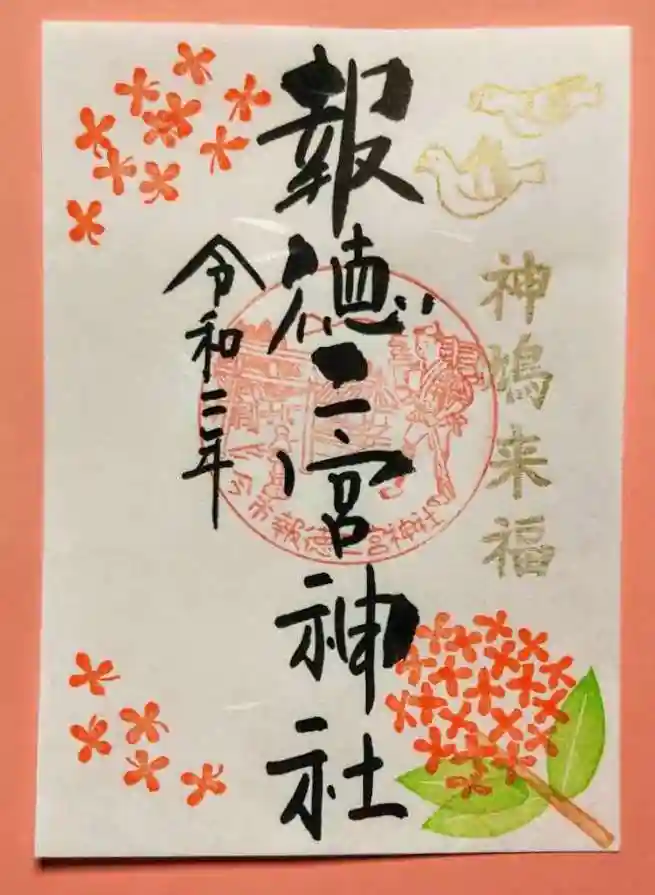 神鳩来福
報徳二宮神社
令和二年
今市報徳二宮神社